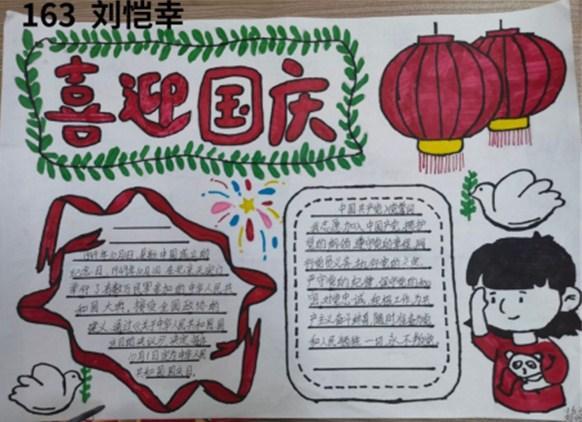 163 刘恺幸
喜迎国庆
1949年10月1日，是新中国成立的
纪念日。1949年10月1日在北京天安门
举行了有数万民军参加的中华人民共
和国大典，接受全国政协的
建议，通过《关于中华人民共和国国
庆日的决议》，决定每年
10月1日定为中华人民
共和国国庆日。
中国共产党入党誓词
我志愿加入中国共产党，拥护
党的纲领，遵守党的章程，履
行党员义务，执行党的决定，
严守党的纪律，保守党的秘
密，对党忠诚，积极工作，为共
产主义奋斗终身，随时准备为党
和人民牺牲一切，永不叛党。